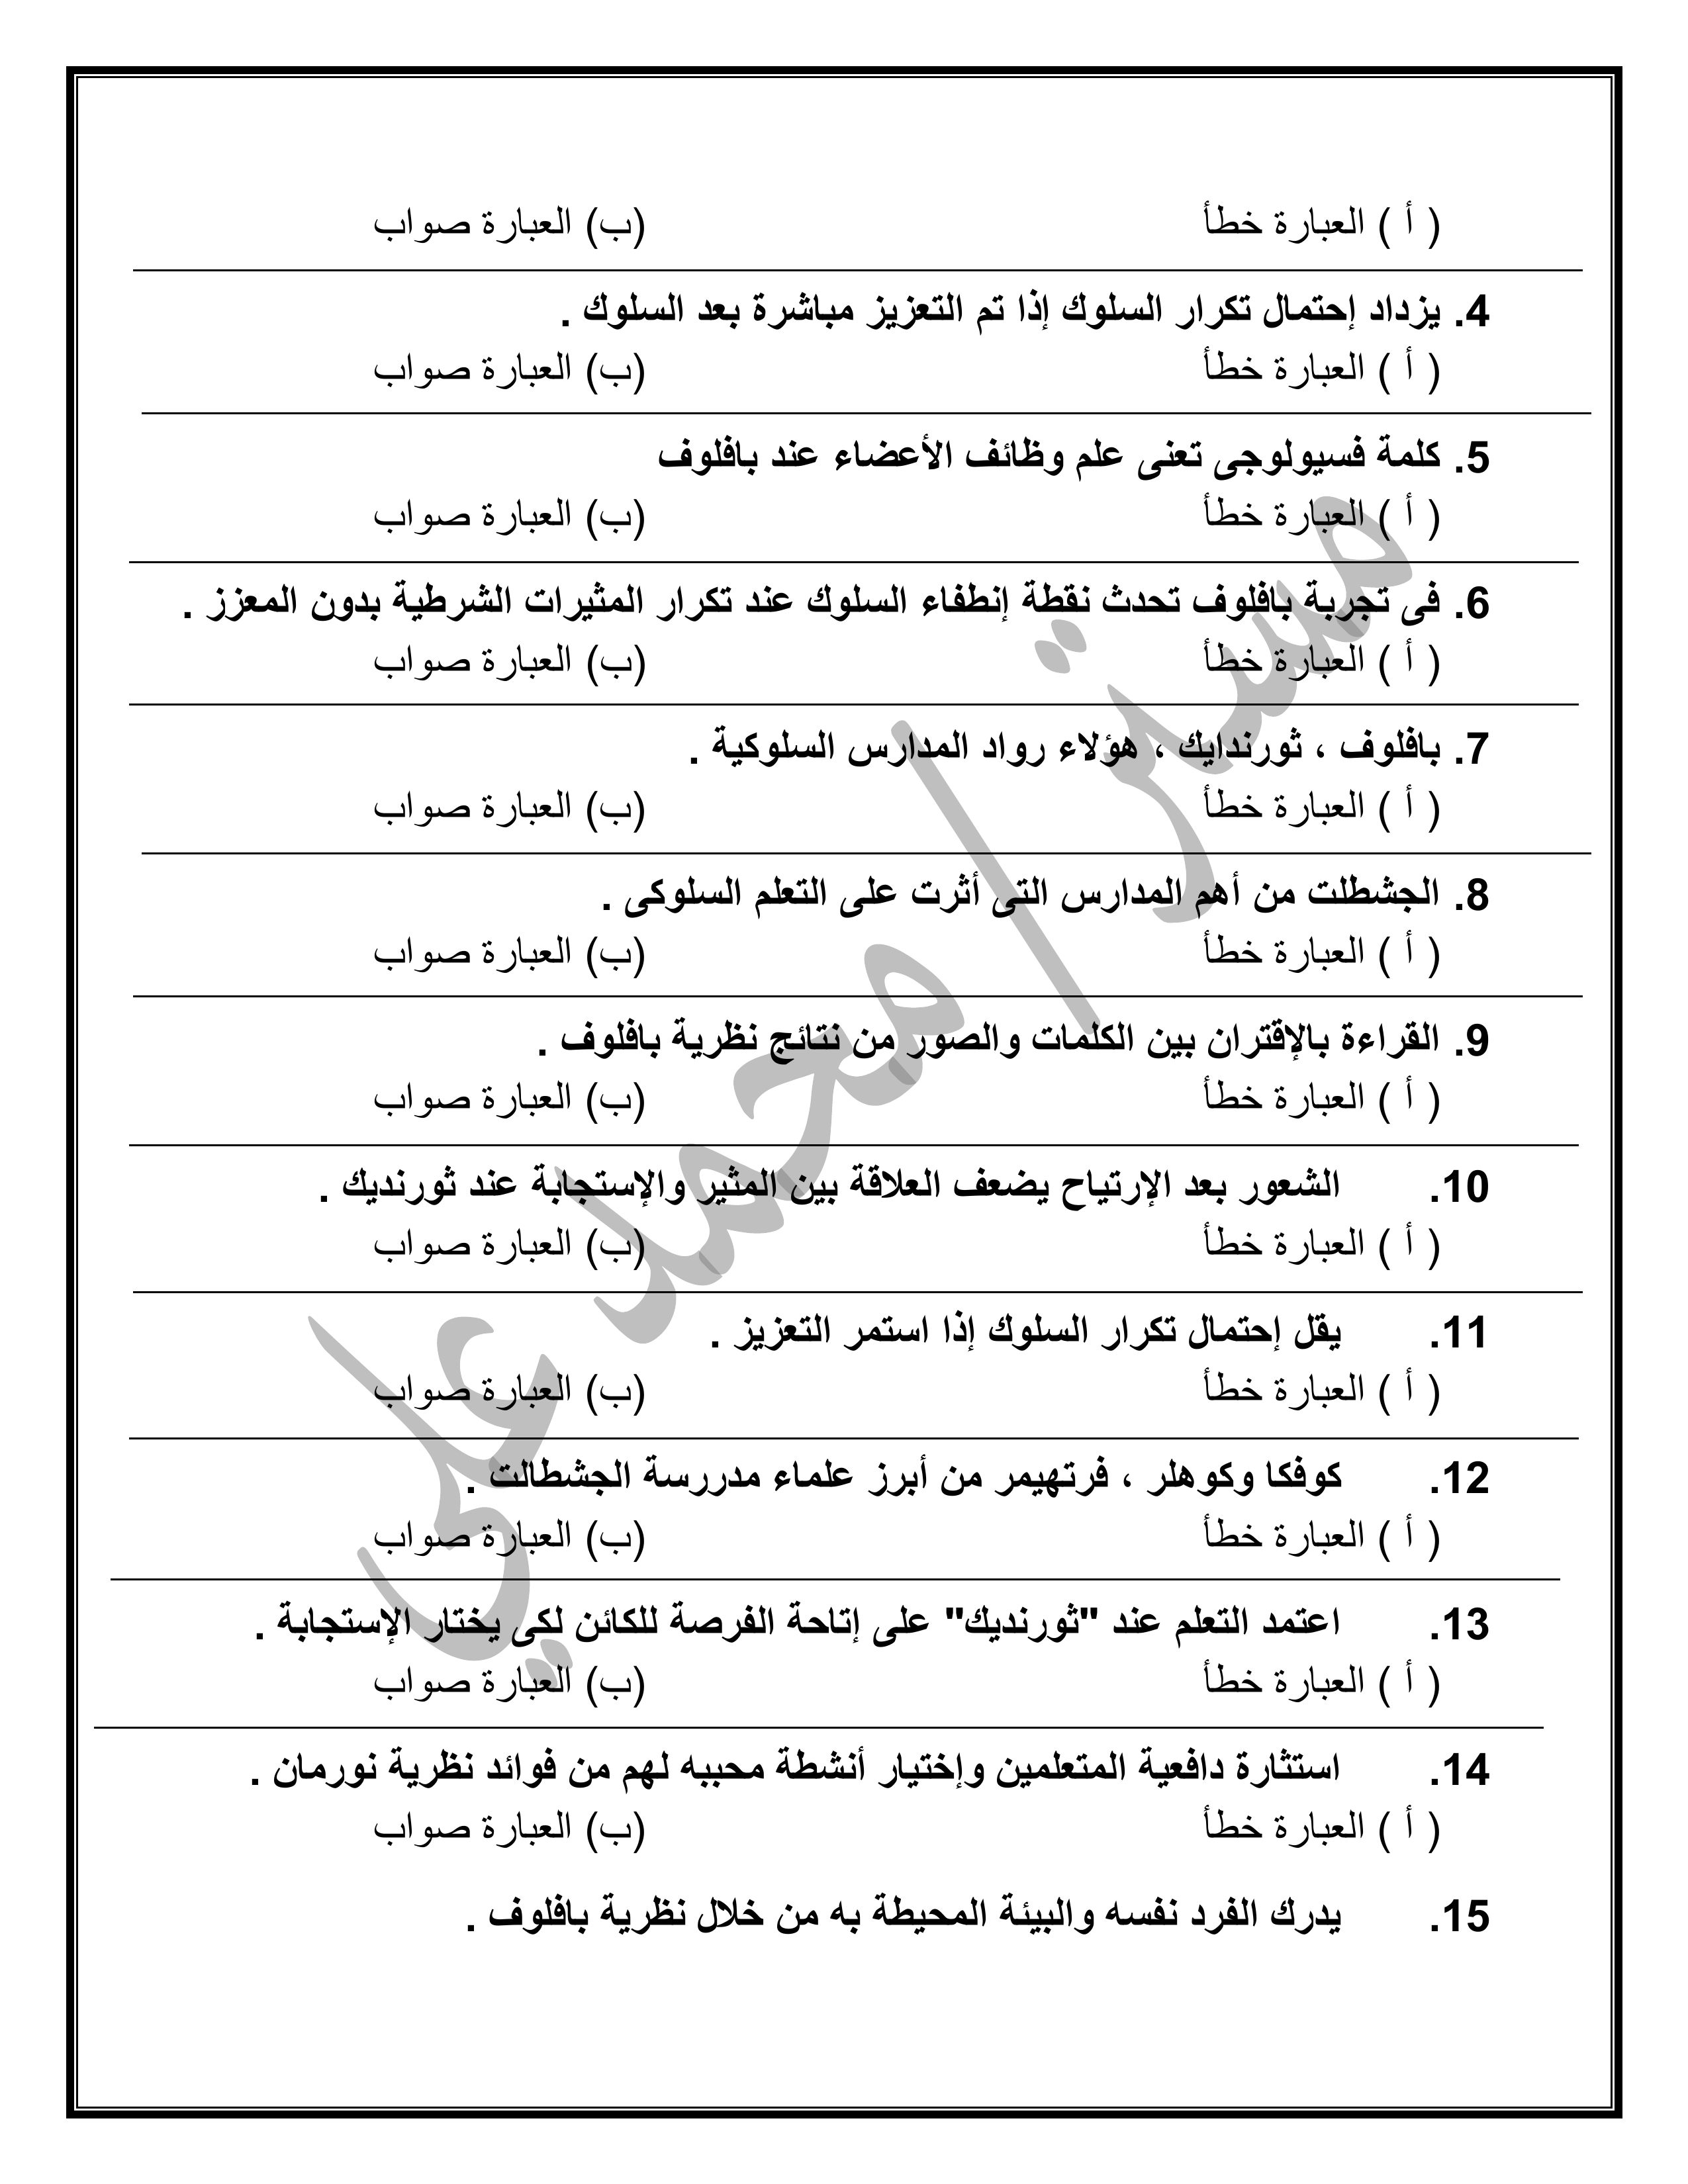 ( أ ) العبارة خطأ (ب) العبارة صواب
4. يزداد إحتمال تكرار السلوك إذا تم التعزيز مباشرة بعد السلوك .
( أ ) العبارة خطأ (ب) العبارة صواب
5. كلمة فسيولوجى تعنى علم وظائف الأعضاء عند بافلوف
( أ ) العبارة خطأ (ب) العبارة صواب
6. فى تجربة بافلوف تحدث نقطة إنطفاء السلوك عند تكرار المثيرات الشرطية بدون المعزز .
( أ ) العبارة خطأ (ب) العبارة صواب
7. بافلوف ، ثورندايك ، هؤلاء رواد المدارس السلوكية .
( أ ) العبارة خطأ (ب) العبارة صواب
8. الجشطلت من أهم المدارس التى أثرت على التعلم السلوكى .
( أ ) العبارة خطأ (ب) العبارة صواب
9. القراءة بالإقتران بين الكلمات والصور من نتائج نظرية بافلوف .
( أ ) العبارة خطأ (ب) العبارة صواب
10. الشعور بعد الإرتياح يضعف العلاقة بين المثير والإستجابة عند ثورنديك .
( أ ) العبارة خطأ (ب) العبارة صواب
11. يقل إحتمال تكرار السلوك إذا استمر التعزيز .
( أ ) العبارة خطأ (ب) العبارة صواب
12. كوفكا وكوهلر ، فرتهيمر من أبرز علماء مدررسة الجشطالت .
( أ ) العبارة خطأ (ب) العبارة صواب
13. اعتمد التعلم عند "ثورنديك" على إتاحة الفرصة للكائن لكى يختار الإستجابة .
( أ ) العبارة خطأ (ب) العبارة صواب
14. استثارة دافعية المتعلمين وإختيار أنشطة محببه لهم من فوائد نظرية نورمان .
( أ ) العبارة خطأ (ب) العبارة صواب
15. يدرك الفرد نفسه والبيئة المحيطة به من خلال نظرية بافلوف .
مستر/محمد علي